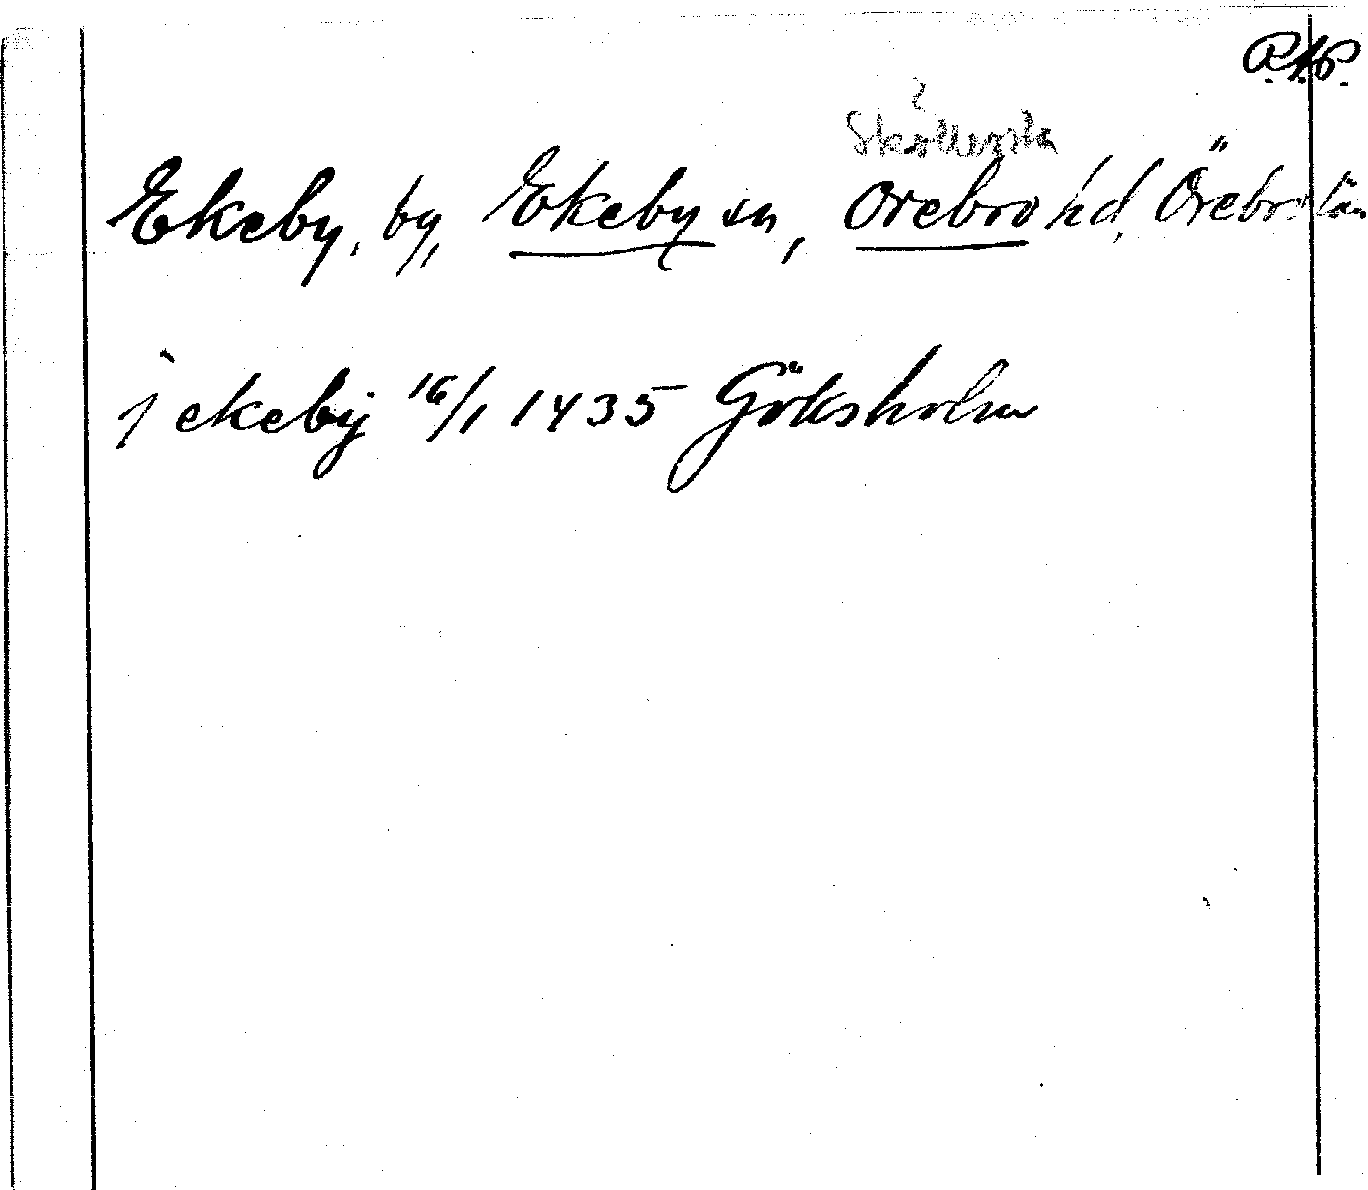 R.A.P.
?
Sköllersta
Ekeby, by, Ekeby sn, Örebro hd, Örebro län
j ekeby 16/1 1435 Göksholm